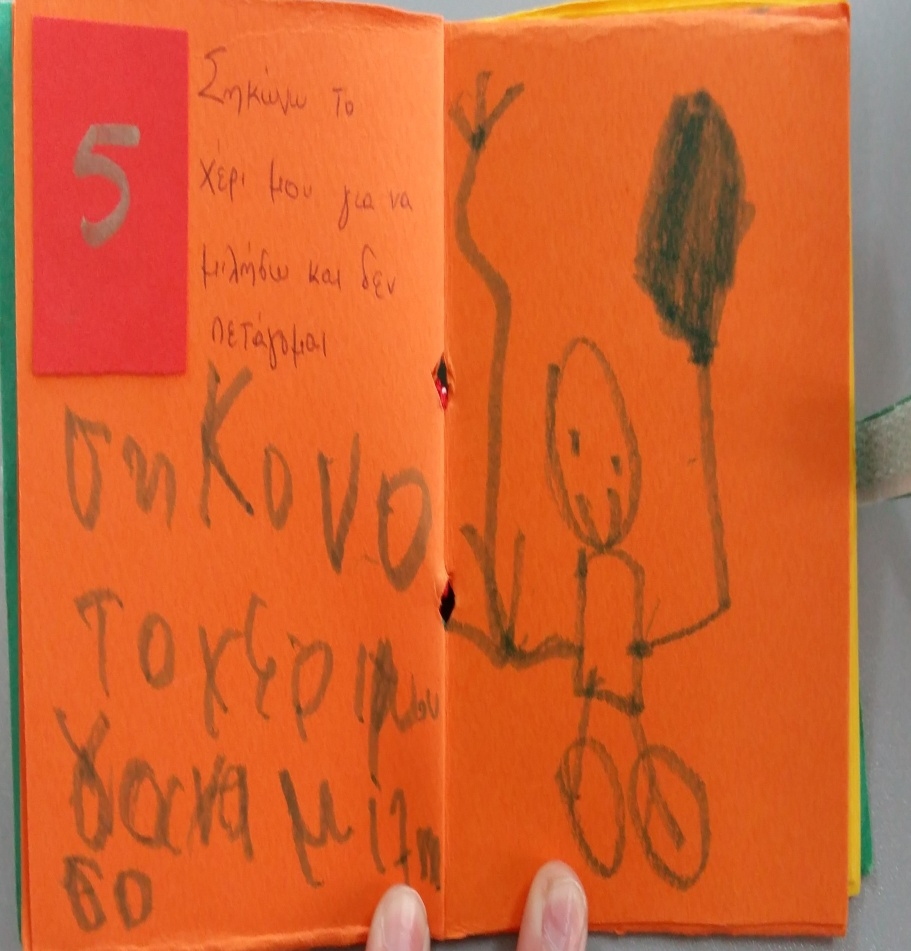 5
Σηκώνω το
χέρι μου για να
μιλήσω και δεν
πετάγομαι
σηκονο
το χέρι μου
γα να μιλη
σο